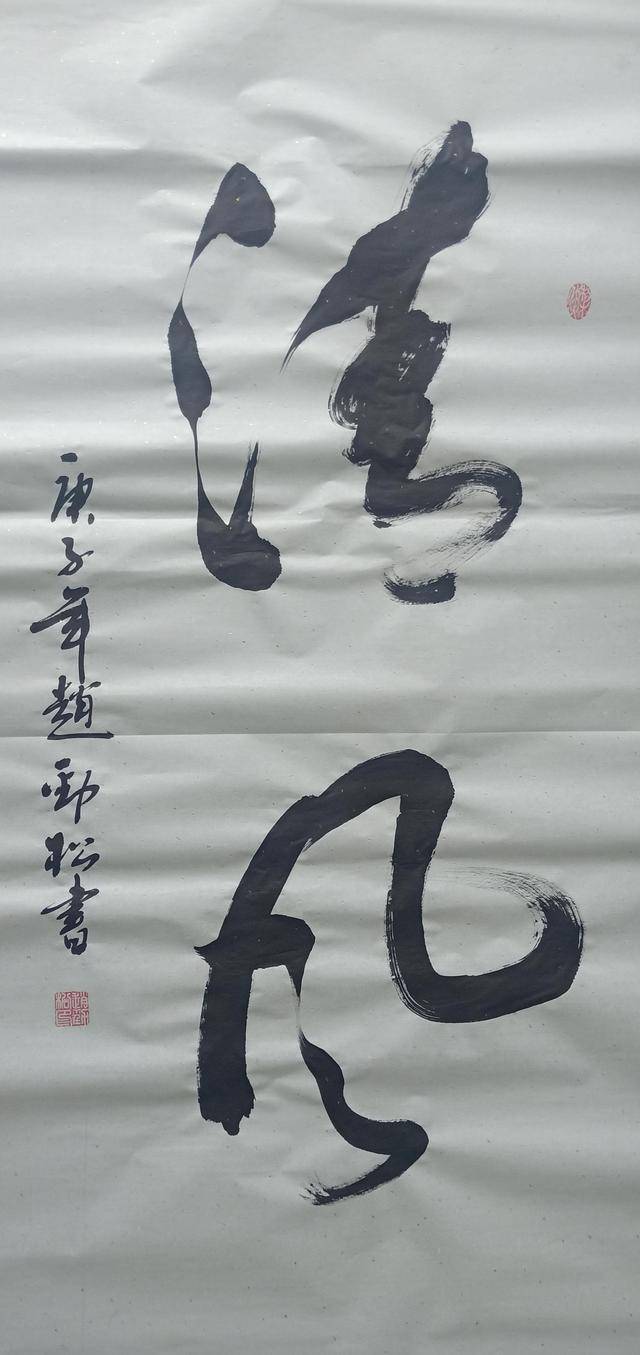 清风
庚子年趙勁松書